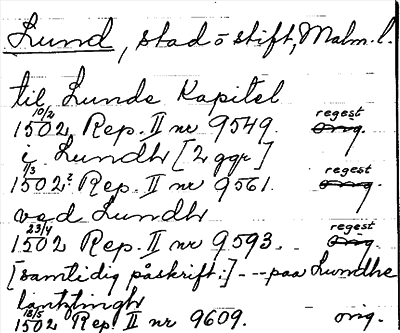 Lund, stad o stift, Malm. l.
til Lunde Kapitel
10/2 regest
1502 Rep. II nr 9549. orig.
i Lundh [2 ggr]
1/3 regest
1502? Rep. II nr 9561. orig.
vod Lundh
23/4 regest
1502 Rep. II nr 9593. orig.
[samtidig påskrift:] --- paa Lundhe
lantztingh
18/5
1502 Rep. II nr 9609. orig.